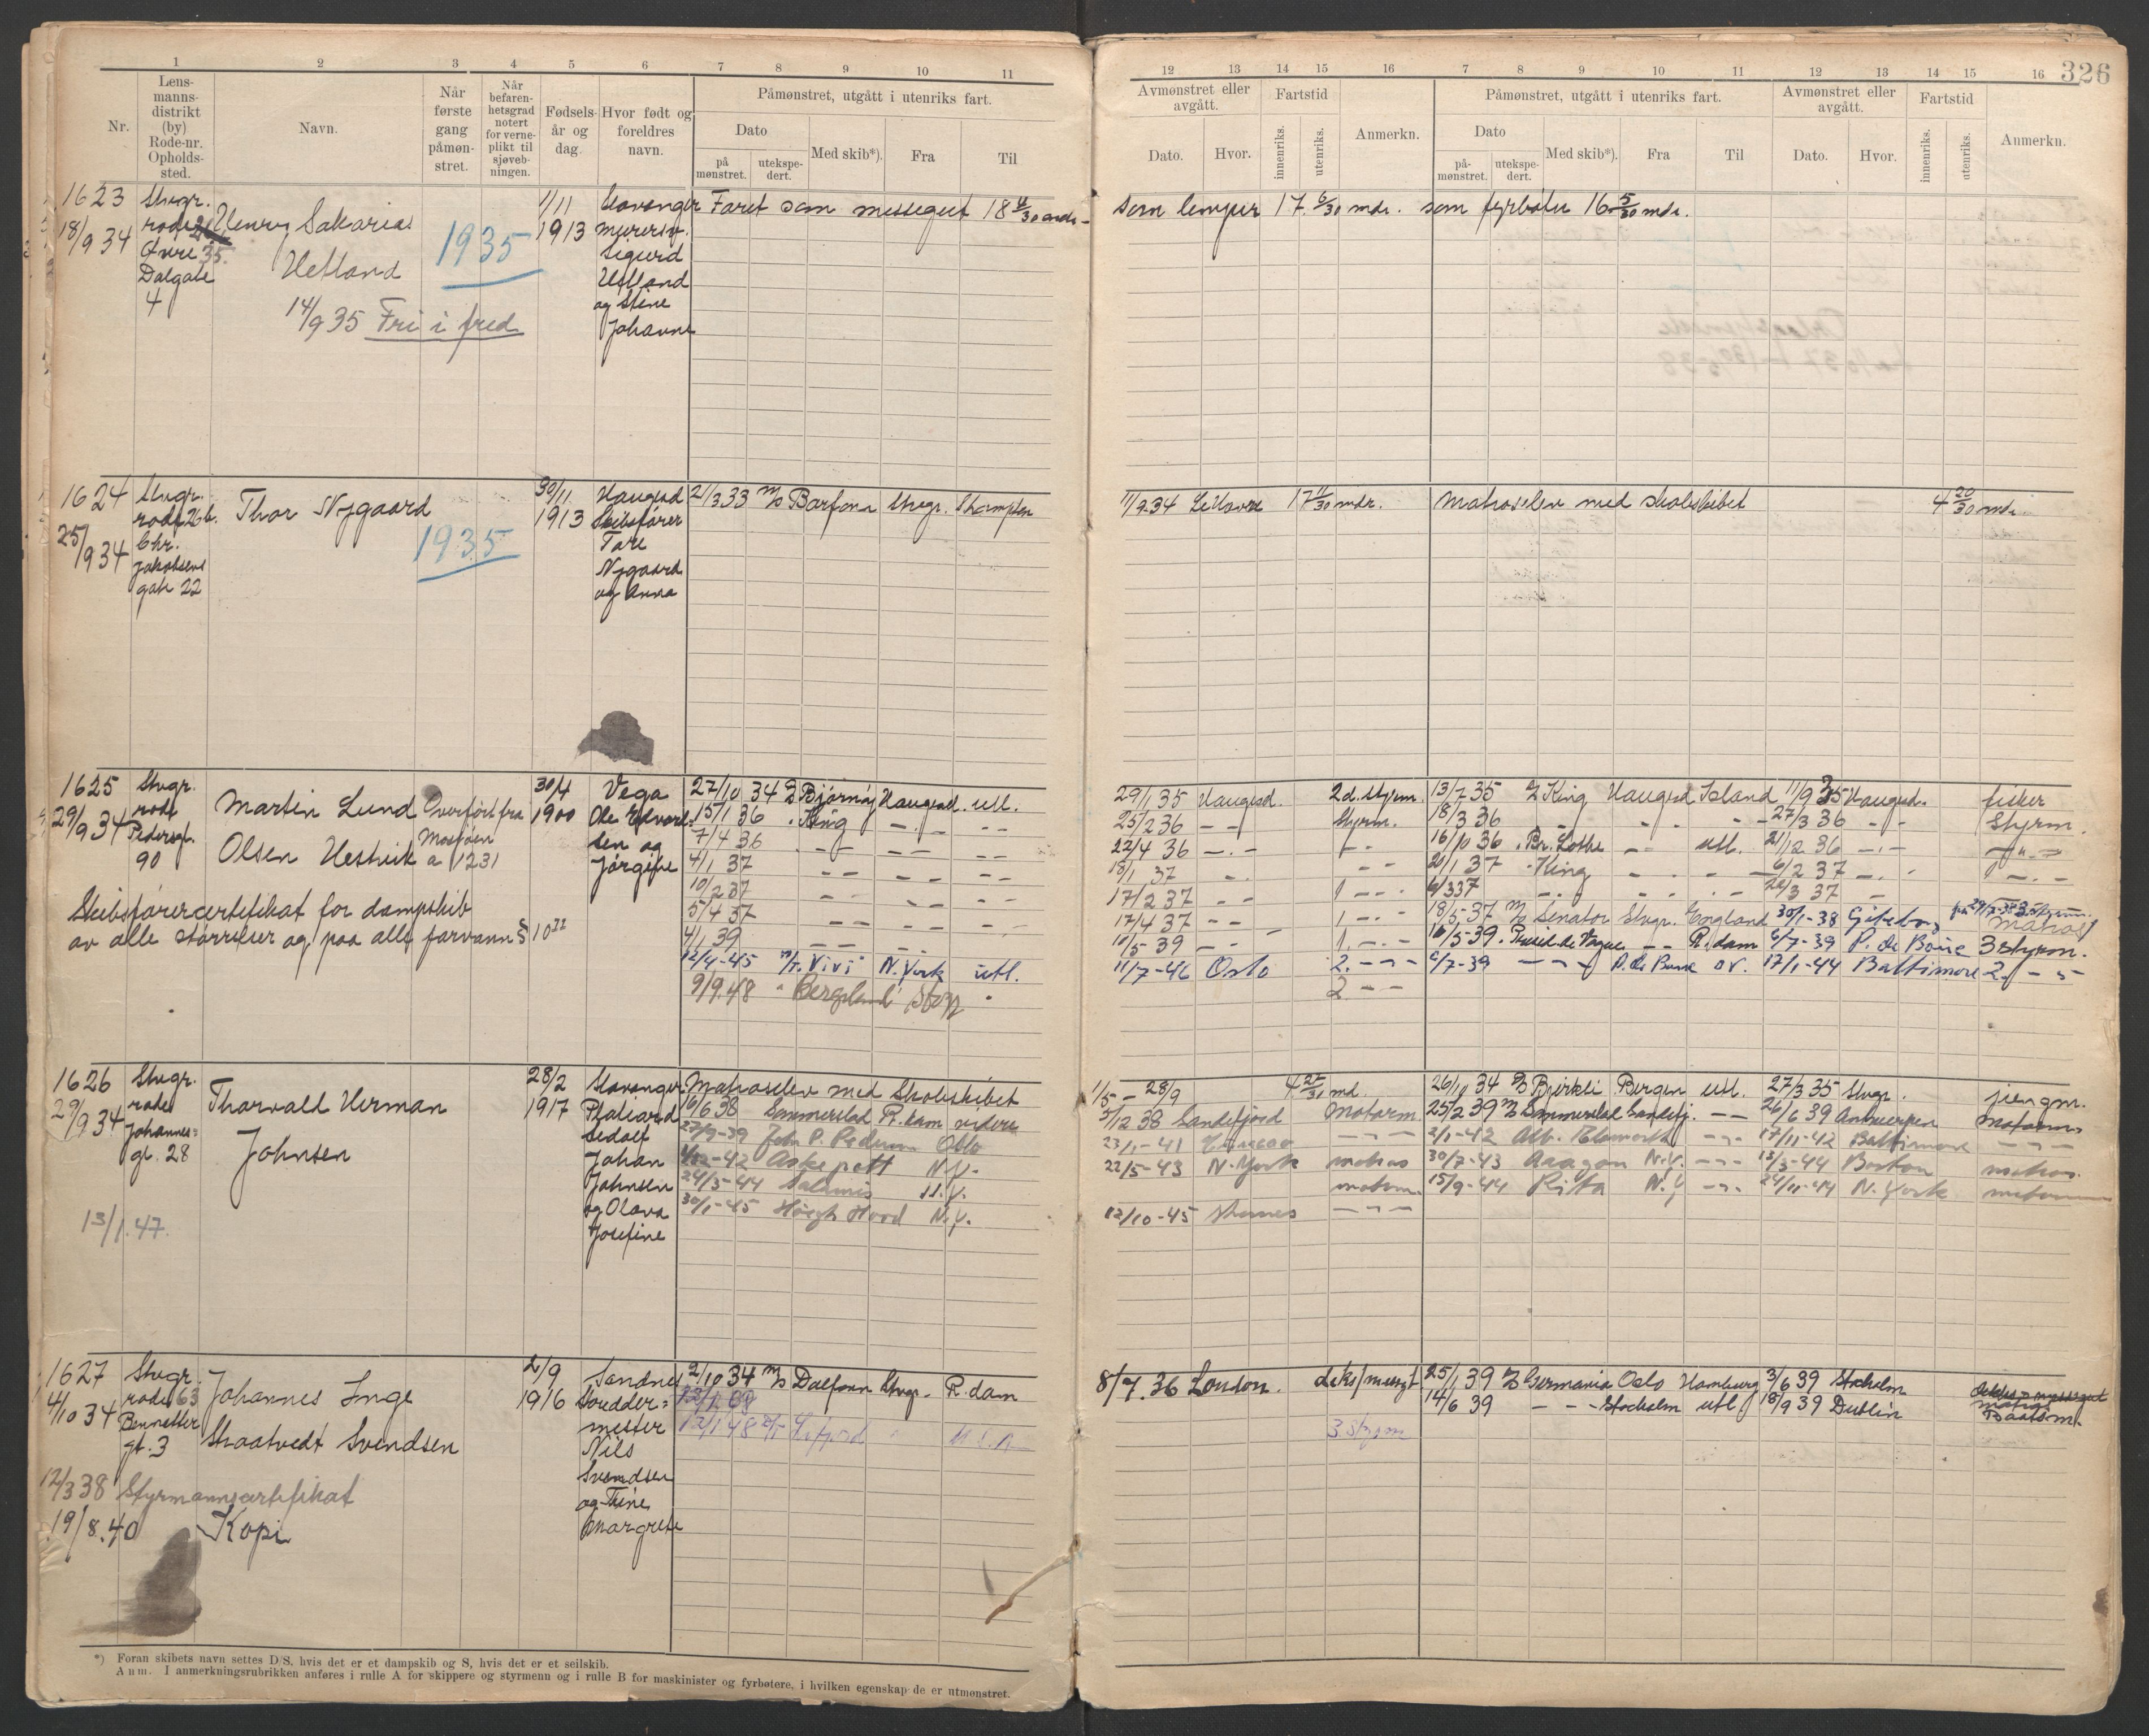 326
1 2 3 4 5 6 7 8 9 10 11
Nr.
Lens-
manns-
distrikt
(by)
Rode-nr.
Opholds-
sted.
Navn.
Når
første
gang
påmøn-
stret.
Når
befaren-
hetsgrad
notert
for verne-
plikt til
sjøveb-
ningen.
Fødsels-
år og
dag.
Hvor født og
foreldres
navn.
Påmønstret, utgått i utenriks fart.
Dato
på
mønstret.
utekspe-
dert.
Med skib*).
Fra
Til
12 13 14 15 16 7 8 9 10 11 12 13 14 15 16
Avmønstret eller
avgått.
Dato.
Hvor.
Fartstid
innenriks.
utenriks.
Anmerkn.
Påmønstret, utgått i utenriks fart.
Dato
på-
mønstret.
utekspe-
dert.
Med skib*).
Fra
Til
Avmønstret eller
avgått.
Dato.
Hvor.
Fartstid
innenriks.
utenriks.
Anmerkn.
1623
18/9 34
Stvgr.
rode
Øvre
Dalgate
4
Henry Sakarias
Hetland
1935
14/9 35 Fri i fred
1/11
1913
Stavanger
murersv.
Sigurd
Hetland
og Stine
Johanne
Faret som messegut 18
som lemper 17 6/30 mdr. som fyrbøter 16 5/30 mdr.
1624
25/9 34
Stvgr.
rode 26b.
Chr.
Jakobsens
gate 22
Thor Nygaard
1935
30/11
1913
Haugesd
Skibsfører
Tore
Nygaard
og Anna
21/3 33 M/S Barfonn Stvgr. Shampton
11/9 34 Le Havre 17 11/30 mdr. Matroselev med skoleskibet 4 20/30 mdr.
1625
29/9 34
Stvgr.
rode
Pedersgt.
90
Martin Lund
Olsen Hestvik
Overført fra
Mosjøen
a 1231
30/4
1900
Vega
Ole Edvard
sen og
Jørgine
Skibsførercertifikat for dampskib
av alle størrelser og paa alle farvann § 10
27/10 34 Bjørnøy Haugesd. utl.
15/1 36 King
7/4 36
4/1 37
10/2 37
5/4 37
4/1 39
12/4-45 M/T. Vivi N. York utl.
9/9.48 Bergeland Stvgr
29/1 35 Haugesd. 2d. styrm. 13/7 35 King Haugesd Island 11/9 35 Haugesd. fisker
25/2 36 Styrm. 18/3 36 27/3 36 Styrm.
22/4 36 16/10 36 Br. Lothe utl. 21/12 36
13/1 37 20/1 37 King 6/2 37
17/2 37 6/3 37 20/3 37
17/4 37 18/5-37 M/S Senator Stvgr. England 30/1-38 Göteborg Matros
10/5 39 16/5-39. R.dam 6/7-39 3 styrm.
11/7-46 Oslo 2. 6/7-39 17/1-44 Baltimore 2.
1626
29/9 34
Stvgr.
rode
Johannes=
gt. 28
Thorvald Herman
Johnsen
13/1.47.
28/2
1917
Stavanger
Johan
Johnsen
og Olava
Josefine
Matroselev med Skoleskibet
6/6 38 Sommerstad R.dam videre
27/9-39 John P. Pedersen Oslo
Askepott N.Y.
24/3-44 Salamis N.Y.
30/1-45 Høegh Hood N.Y.
1/5 - 28/9 4 27/30 md. 26/10 34 Bjørkli Bergen utl. 27/3 35 Stvgr. jungm.
5/12 38 Sandefjord Motorm. 25/2 39 M/S Sommerstad Sandefj. 26/6 39 Antwerpen Motorm
23/1-41 Curacao 2/1-42 17/11-42 Baltimore
22/5-43 N. York matros 30/7-43 Aragon N.Y. 13/3-44 Boston matros.
motorm. 15/9-44 Rita N.Y 24/11-44 N. York
12/10-45
1627
4/10 34
Stvgr.
rode 63
Bennetter
gt. 3
Johannes Inge
Skaatvedt Svendsen
2/9
1916
Sandnes
Skredder=
mester
Nils
Svendsen
og Trine
Margrete
12/3 38 Styrmannscertifikat
19/8.40 Kopi
2/10 34 M/S Dalfonn Stvgr. R.dam
12/1 48 U.S.A
8/7.36 London. 25/1 39 Germania Oslo Hamburg 3/6 39 Stockholm
3 styrm 14/6 39 Stockholm utl 18/9 39 Dublin Baatsm.
*) Foran skibets navn settes D/S, hvis det er et dampskib og S, hvis det er et seilskib.
Anm. I anmerkningsrubrikken anføres i rulle A for skippere og styrmenn og i rulle B for maskinister og fyrbøtere, i hvilken egenskap de er utmønstret.